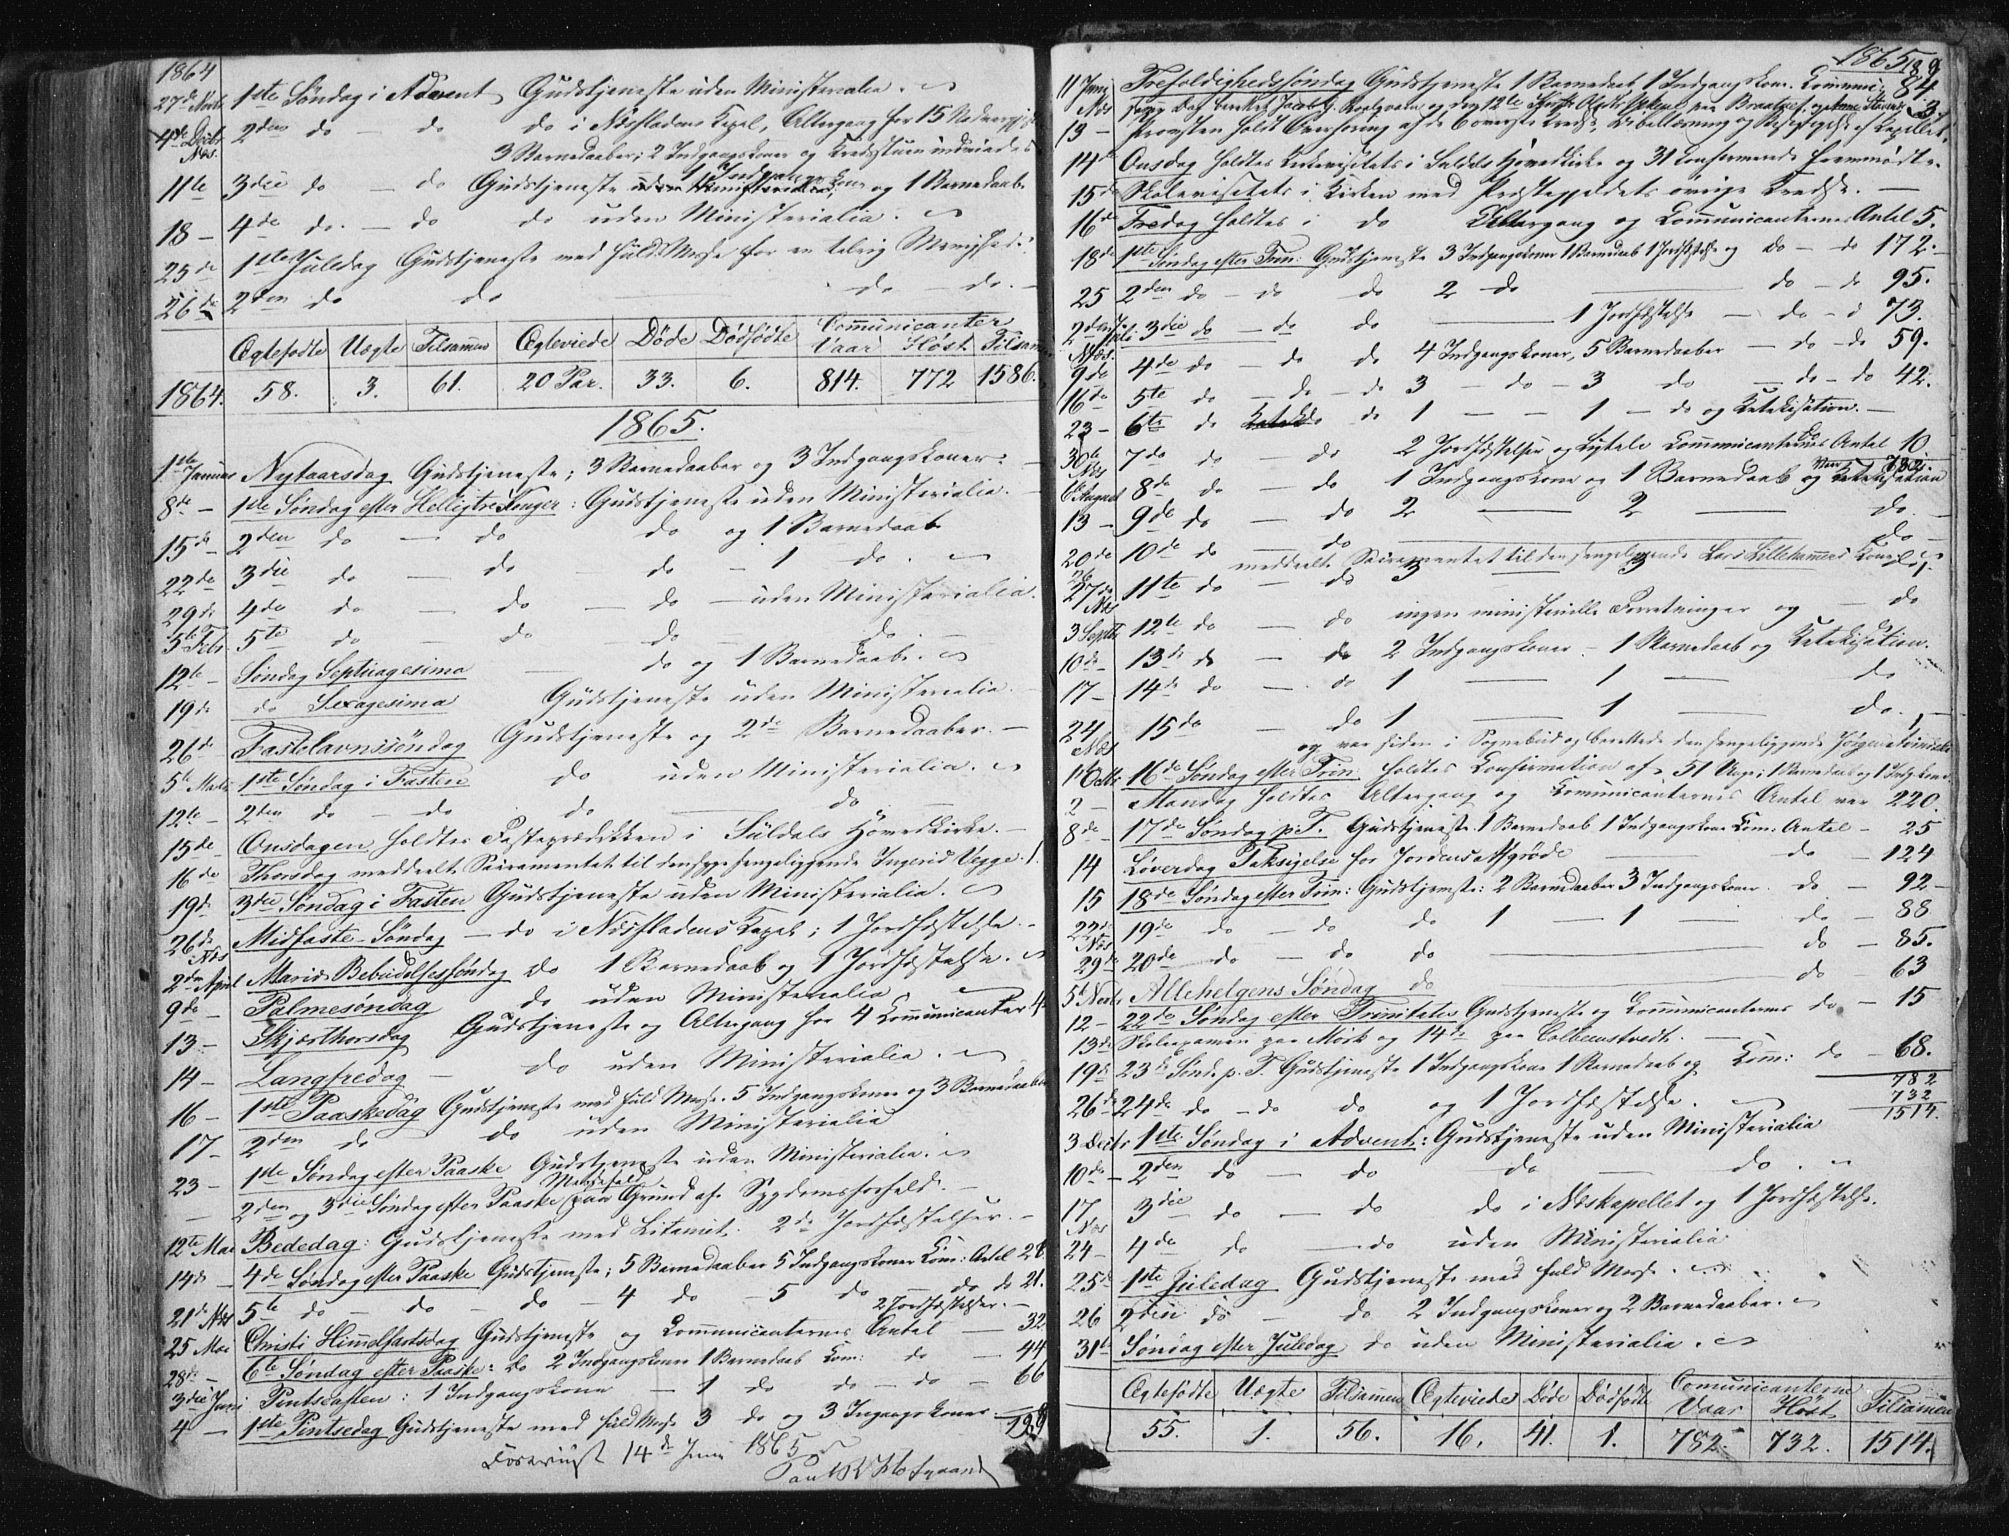 1864
27de Novbr 1ste Søndag i Advent Gudstjeneste uden Ministerialia.
4de Decbr Næs. 2den do — do do i Næsfladens Kapel, Altergang for 15
3 Barnedaaber; 2 Indgangskoner og
11te 3die do — do Gudstjeneste uden Ministerialia, 1 Indgangskone og 1 Barnedaab
18 — 4de do. — do do uden Ministerialia.
25de 1ste Juledag Gudstjeneste med fuld Messe for en talrig
26de 2den do do — do — do. —
Ægtefødte Uægte Tilsammen Ægteviede Døde Dødfødte Communicanter Vaar Høst Tilsam
1864. 58. 3. 61. 20 Par. 33. 6. 814. 772 1586.
1865.
1ste Januar Nytaarsdag Gudstjeneste; 3 Barnedaaber og 3 Indgangskoner. —
8de — 1ste Søndag efter Helligtre Konger: Gudstjeneste uden Ministerialia. —
15de 2den do — do do og 1 Barnedaab
22de 3die do — do — do — 1 do.
29de 4de do — do — do — uden Ministerialia.
5te Febr 5te do — do do — do. —
12te — Søndag Septuagesima — do og 1 Barnedaab.
19de do Sexagesima Gudstjeneste uden Ministerialia. —
26de Fastelavnssøndag Gudstjeneste og 2de Barnedaaber. —
5te Marts 1ste Søndag i Fasten do uden Ministerialia.
12te — 2den do — do do — do —
15de Onsdagen holdtes Fasteprædikken i Suldals Hovedkirke. —
16de Thorsdag meddeelt Sacramentet til den syge sengeliggende Ingerid Vegge. 1.
19de 3die Søndag i Fasten Gudstjeneste uden Ministerialia.
26de Næs Midfaste-Søndag — do i Næsfladens Kapel; 1 Jordfæstelse. —
2den April Mariæ Bebudelsessøndag do 1 Barnedaab og 1 Jordfæstelse.
9de — Palmesøndag do uden Ministerialia
13 — Skjærthorsdag Gudstjeneste og Altergang for 4 Communicanter 4
14 — Langfredag — do uden Ministerialia.
16 — 1ste Paaskedag Gudstjeneste med fuld Messe. 5 Indgangskoner og 3 Barnedaaber
17 — 2den do do uden Ministerialia
23 — 1ste Søndag efter Paaske Gudstjeneste uden Ministerialia.
— 2den og 3die Søndag efter Paaske Messefald paa Grund af Sygdomsforfald. —
12te Mai Bededag: Gudstjeneste med Litaniet. 2de Jordfæstelser. —
14de — 4de Søndag efter Paaske Gudstjeneste; 5 Barnedaaber 5 Indgangskoner Com: Antal 28
21de Næs 5te do — do — do — 4 do — 5 do — do do 21.
2 Jordfæstelser. —
25 Mai Christi Himmelfartsdag Gudstjeneste og Communicanternes Antal — 32
28de — 6te Søndag efter Paaske: do 2 Indgangskoner 1 Barnedaab Com: do — 44
3die Juni Pintseaften: 1 Indgangskone — 1 do do — do — 66
4 — 1ste Pintsedag Gudstjeneste med fuld Messe 3 do og 3 Ingangskoner.
Foreviist 14de Juni 1865
1865
11 Juni Næs Trefoldighedssøndag Gudstjeneste 1 Barnedaab 1 Indgangskone. Communi: 84
13 — Provsten holdt Overhøring af de 6 øverste Kredse,
14de Onsdag holdtes Kirkevisitats i Suldals Hovedkirke og 31 Confirmerede fremmødte.
15de Skolevisitats i Kirken med Præstegjeldets øvrige Kredse. —
16de Fredag holdtes i do Altergang og Communicanternes Antal 5.
18de 1ste Søndag efter Trin: Gudstjeneste 3 Indgangskoner 1 Barnedaab 1 Jordfæstelse og do — do 172.
25 2den do — do do 2 do — do — do 95.
2den Juli 3die do — do do — 1 Jordfæstelse — do — d 73.
Næs. 9de 4de do — do do 4 Indgangskoner, 5 Barnedaaber — do — do 59.
16de 5te do — do — do 3 — do — 3 do — do — do 42.
23 — 6te do do 1 — — 1 — do og Katekisation. —
30te Næs 7de do — do 2 Jordfæstelser og Communicanternes Antal 10
782.
6te August 8de do — do 1 Indgangskone og 1 Barnedaab og Katekisation
13 — 9de do — do 2 — 2 — do. —
20de 10de do — do — do —
meddeelt Sacramentet til den sengeliggende Lars Lillehammers Kone 1.
27de Næs 11te do — do 3 — 3 do
3 Septbr 12te do — do ingen ministerielle Forretninger og — do
10de — 13de do — do 2 Indgangskoner — 1 Barnedaab og Katekisation.
17 — 14de do — do 1 — 1 — do
24 Næs 15de — do 1 — 1 — do. —
og var siden i Sognebud og berettede den sengeliggende Jørgen 1
1ste Octbr 16de Søndag efter Trin: holdtes Confirmation af 51 Unge; 1 Barnedaab og 1 Indg.kone.
2 — Mandag holdtes Altergang og Communicanternes Antal var 220.
8de — 17de Søndag p. T. Gudstjeneste. 1 Barnedaab 1 Indgangskone Com: Antal — 25
14 Løverdag Taksigelse for Jordens Afgrøde — do — 124
15 18de Søndag efter Trin: Gudstjeneste: 2 Barnedaaber 3 Indgangskoner. do — 92 —
22de Næs 19de do — do do 1 — 1 — do — 88
29de 20de do — do do — do — 85.
5te Novbr Allehelgens Søndag do — do — 63
12 — 22de Søndag efter Trinitatis Gudstjeneste og Communicanternes do — 15
13de Skoleexamen paa Mork og 14de paa Colbeenstvedt. —
19de 23de Sønd. p. T. Gudstjeneste 1 Indgangskone 1 Barnedaab og Com: do — 68.
782
26de 24de do — do do og 1 Jordfæstelse. 732
1514.
3 Decbr 1ste Søndag i Advent: Gudstjeneste uden Ministerialia
10de — 2den do — do do — do.
17 Næs 3die do — do do i Næskapellet og 1 Jordfæstelse.
24 — 4de do — do uden Ministerialia
25de 1ste Juledag Gudstjeneste med fuld Messe.
26 2den do — do 2 Indgangskoner og 2 Barnedaaber.
31te Søndag efter Juledag do uden Ministerialia.
Ægtefødte Uægte Tilsamen Ægteviede Døde Dødfødte Comunicanterne Vaar Høst Tilsamen
55. 1. 56. 16. 41. 1. 782. 732. 1514.